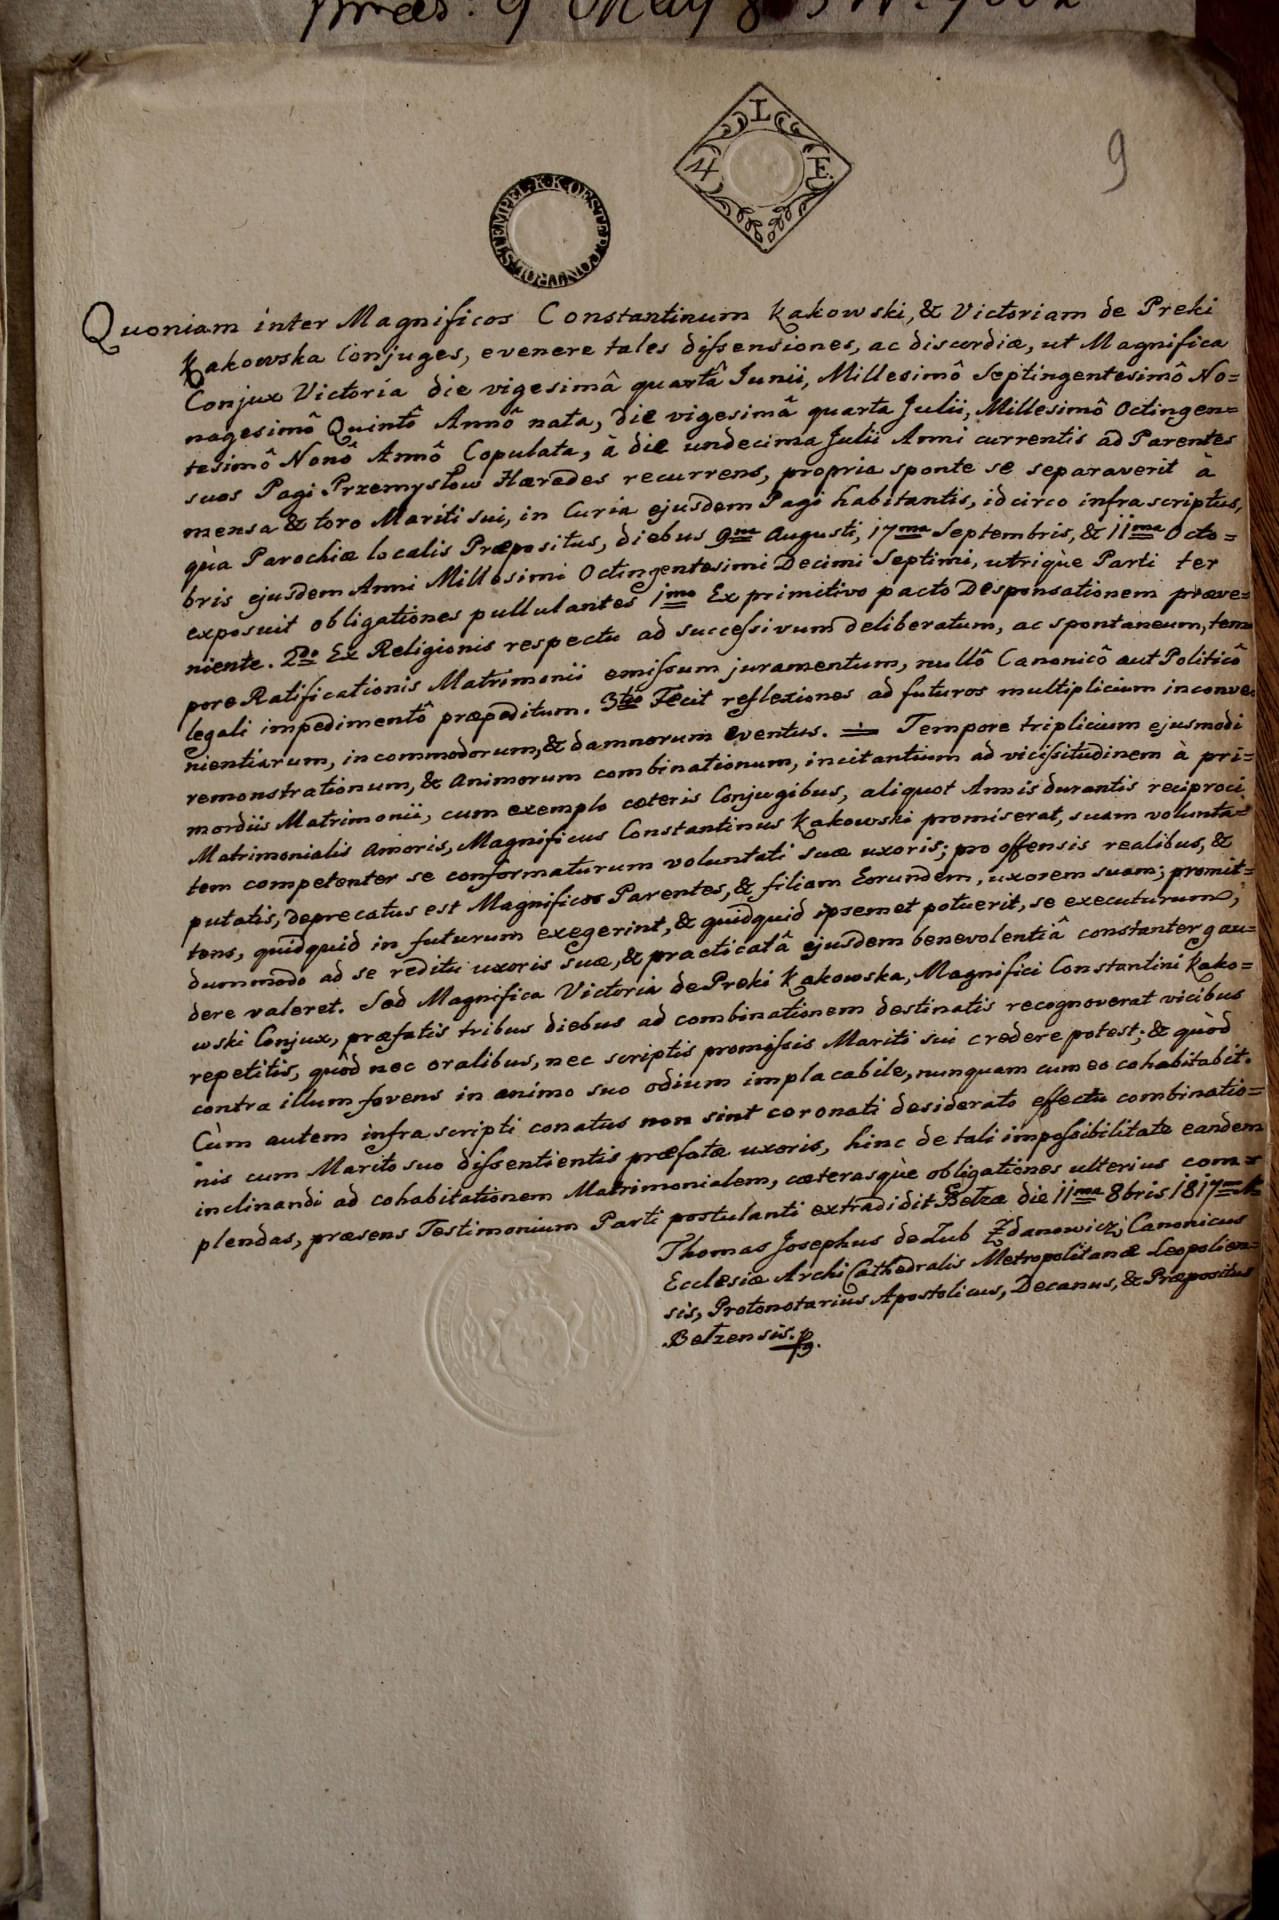 9 May 8
L
4 E.
9
STEMPEL. K. K. OESTER. CONTROL
Quoniam inter Magnificos Constantinum Kakowski, & Victoriam de Preki
Kakowska Conjuges, evenere tales dissensiones, ac discordiæ, ut Magnifica
Conjux Victoria die vigesimâ quartâ Junii, Millesimô Septingentesimô No=
nagesimô Quintô Annô nata, die vigesimâ quarta Julii, Millesimô Octingen=
tesimô Nonô Annô Copulata, à die undecima Julii Anni currentis ad Parentes
suos Pagi Przemysłow Hæredes recurrens, propria sponte se separaverit à
mensa & toro Mariti sui, in Curia ejusdem Pagi habitantis, idcirco infrascriptus,
qùa Parochiæ localis Præpositus, diebus 9na Augusti, 17ma Septembris, & 11ma Octo=
bris ejusdem Anni Millesimi Octingentesimi Decimi Septimi, utriqùe Parti ter
exposuit obligationes pullulantes 1mo Ex primitivo pacto Desponsationem præve=
niente. 2do Ex Religionis respectu ad successivum deliberatum, ac spontaneum, tem=
pore Ratificationis Matrimonii emissum juramentum, nullô Canonicô aut Politicô
legali impedimentô præpeditum. 3tio Fecit reflexiones ad futuros multiplicium inconve=
nientiarum, incommodorum, & damnorum eventus. ÷ Tempore triplicium ejusmodi
remonstrationum, & Animorum combinationum, incitantium ad vicissitudinem à pri=
mordiis Matrimonii, cum exemplo cæteris Conjugibus, aliquot Annis durantis reciproci
Matrimonialis amoris, Magnificus Constantinus Kakowski promiserat, suam volunta=
tem competenter se conformaturum voluntati suæ uxoris; pro offensis realibus, &
putatis, deprecatus est Magnificos Parentes, & filiam Eorundem, uxorem suam; promit=
tens, quidquid in futurum exegerint, & quidquid ipsemet potuerit, se executurum,
dummodo ad se reditu uxoris suæ, & practicatâ ejusdem benevolentiâ constanter gau=
dere valeret. Sed Magnifica Victoria de Preki Kakowska, Magnifici Constantini Kako=
wski Conjux, præfatis tribus diebus ad combinationem destinatis recognoverat vicibus
repetitis, quòd nec oralibus, nec scriptis promissis Mariti sui credere potest; & quòd
contra illum fovens in animo suo odium implacabile, nunquam cum eo cohabitabit.
Cùm autem infrascripti conatus non sint coronati desiderato effectu combinatio=
nis cum Marito suo dissentientis præfatæ uxoris, hinc de tali impossibilitate eandem
inclinandi ad cohabitationem Matrimonialem, cæterasqùe obligationes ulterius com=
plendas, præsens Testimonium Parti postulanti extradidit Bełzæ die 11ma 8bris 1817
Thomas Josephus de Lub Zdanowicz, Canonicus
Ecclesiæ Archi Cathedralis Metropolitanæ Leopolien=
sis, Protonotarius Apostolicus, Decanus, & Præpositus
Bełzensis.